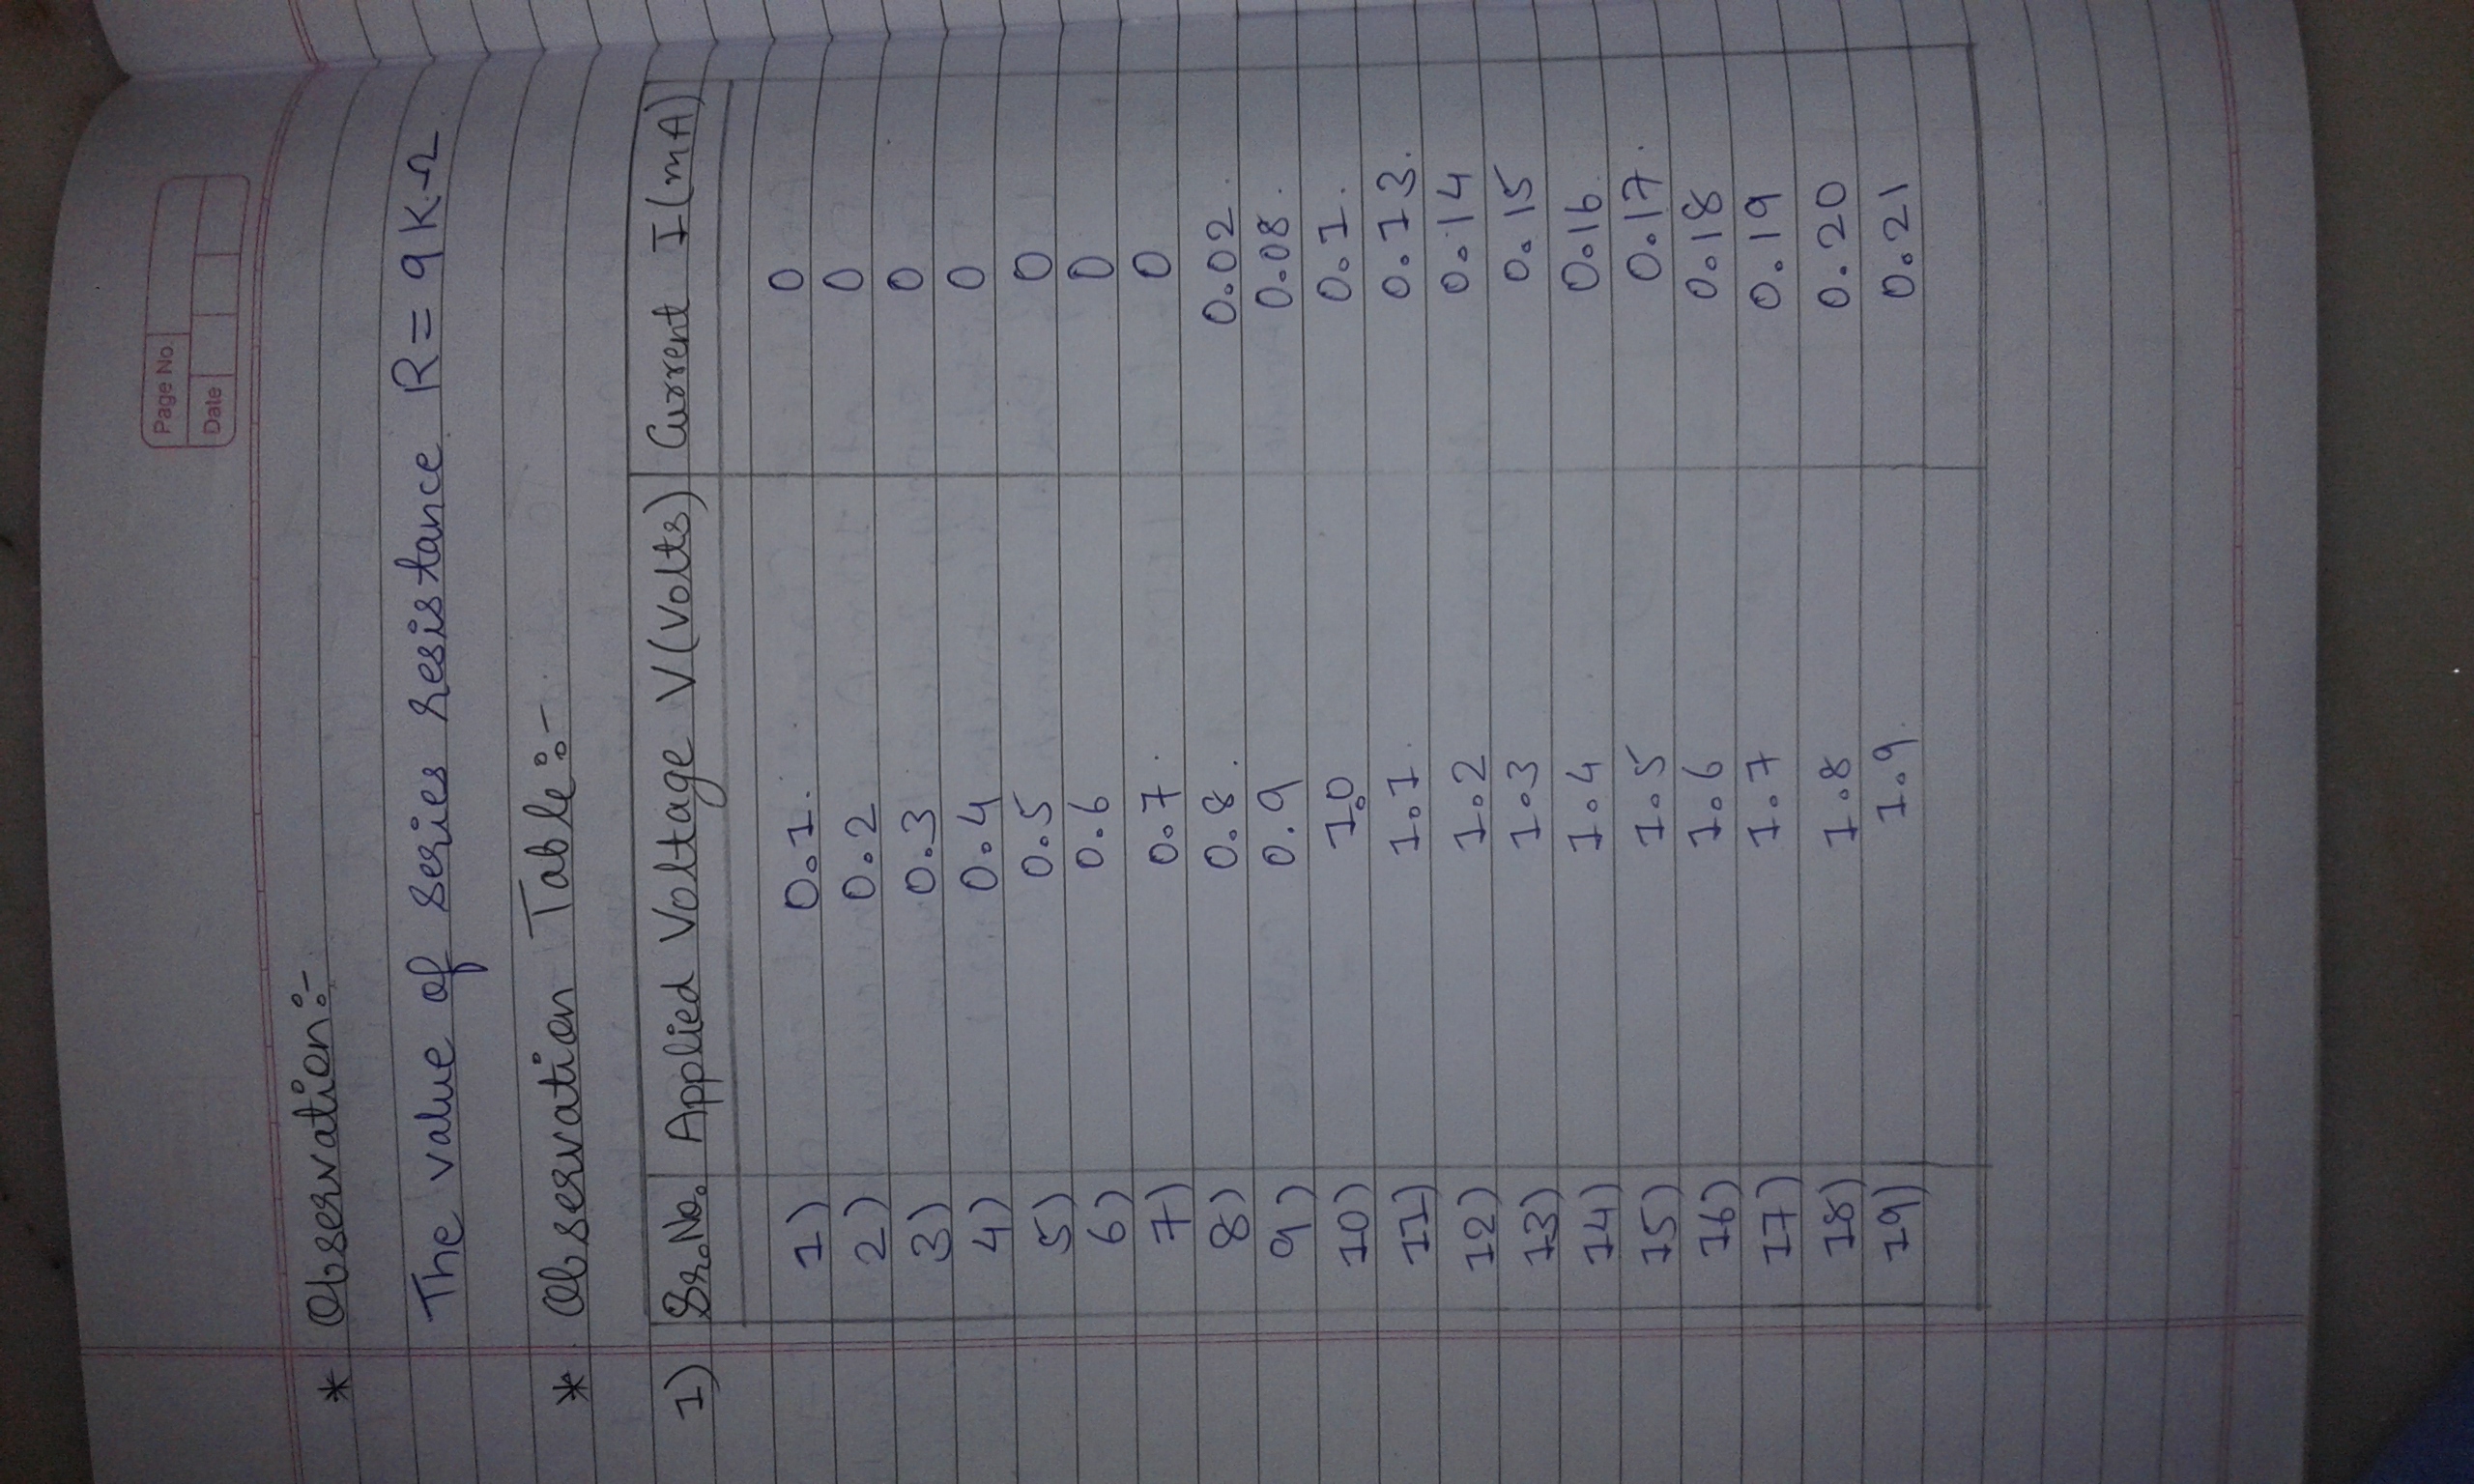 Page No.
Date
* Observation:-
The value of series resistance R = 9 KΩ
* Observation Table:-
1) Sr.No. Applied Voltage V(Volts) Current I(mA)
1) 0.1. 0
2) 0.2 0
3) 0.3 0
4) 0.4 0
5) 0.5 0
6) 0.6 0
7) 0.7 0
8) 0.8. 0.02
9) 0.9 0.08
10) 1.0 0.1.
11) 1.1 0.13.
12) 1.2 0.14
13) 1.3 0.15
14) 1.4 0.16
15) 1.5 0.17
16) 1.6 0.18
17) 1.7 0.19
18) 1.8 0.20
19) 1.9 0.21